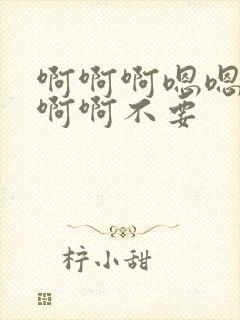 啊啊啊嗯嗯
啊啊不要
柠小甜